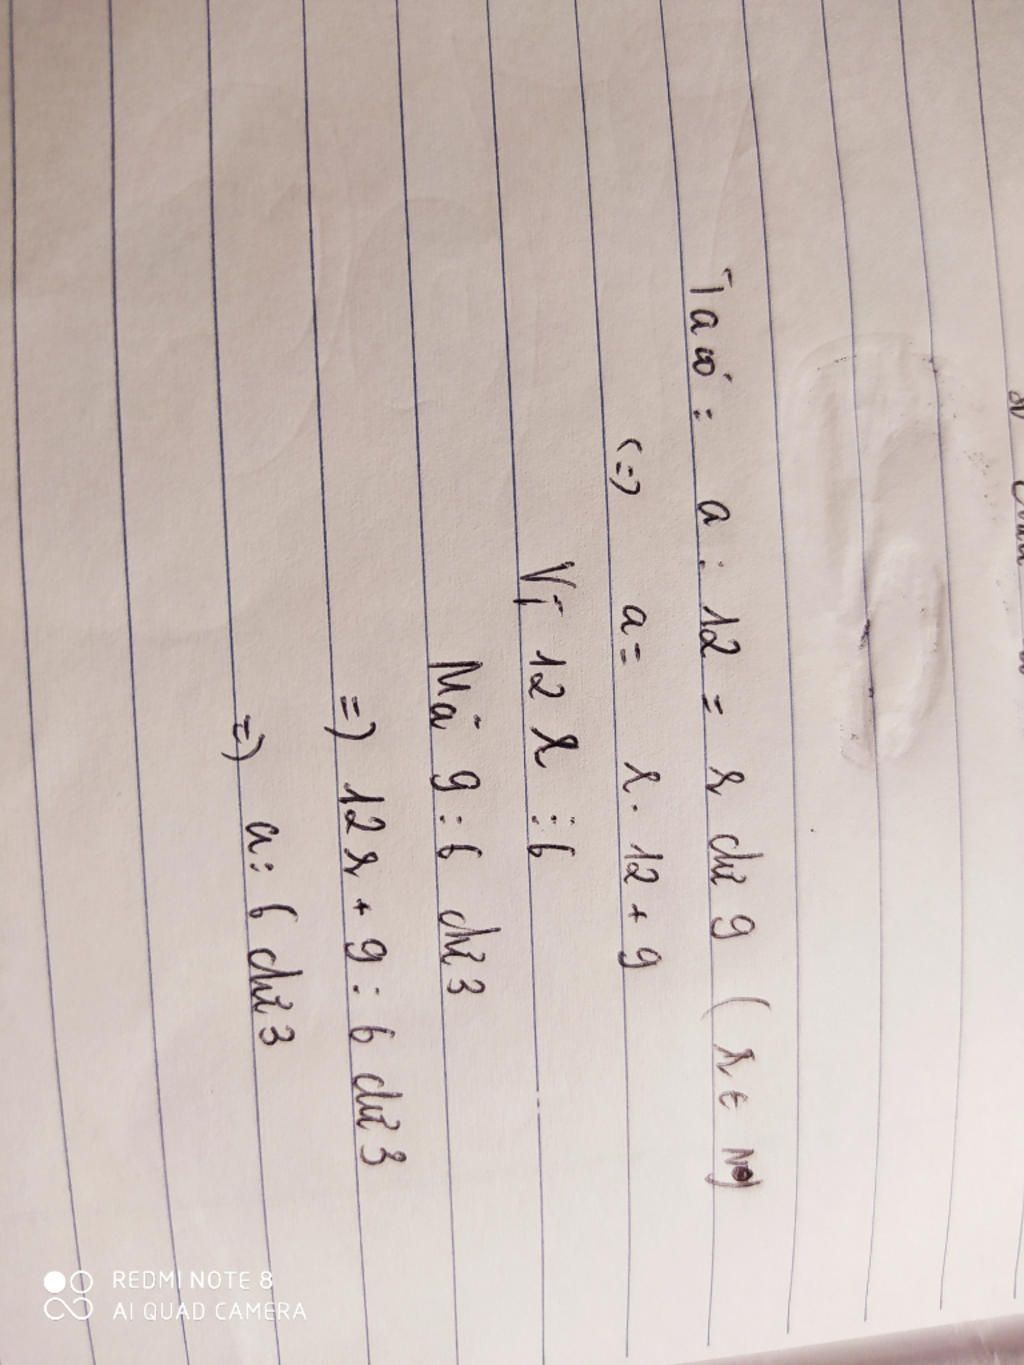 Ta có: a : 12 = k dư 9 (k ∈ N)
(=) a = k. 12 + 9
Vì 12 k ⋮ 6
Mà 9 : 6 dư 3
=) 12k + 9 : 6 dư 3
=) a : 6 dư 3
REDMI NOTE 8
AI QUAD CAMERA